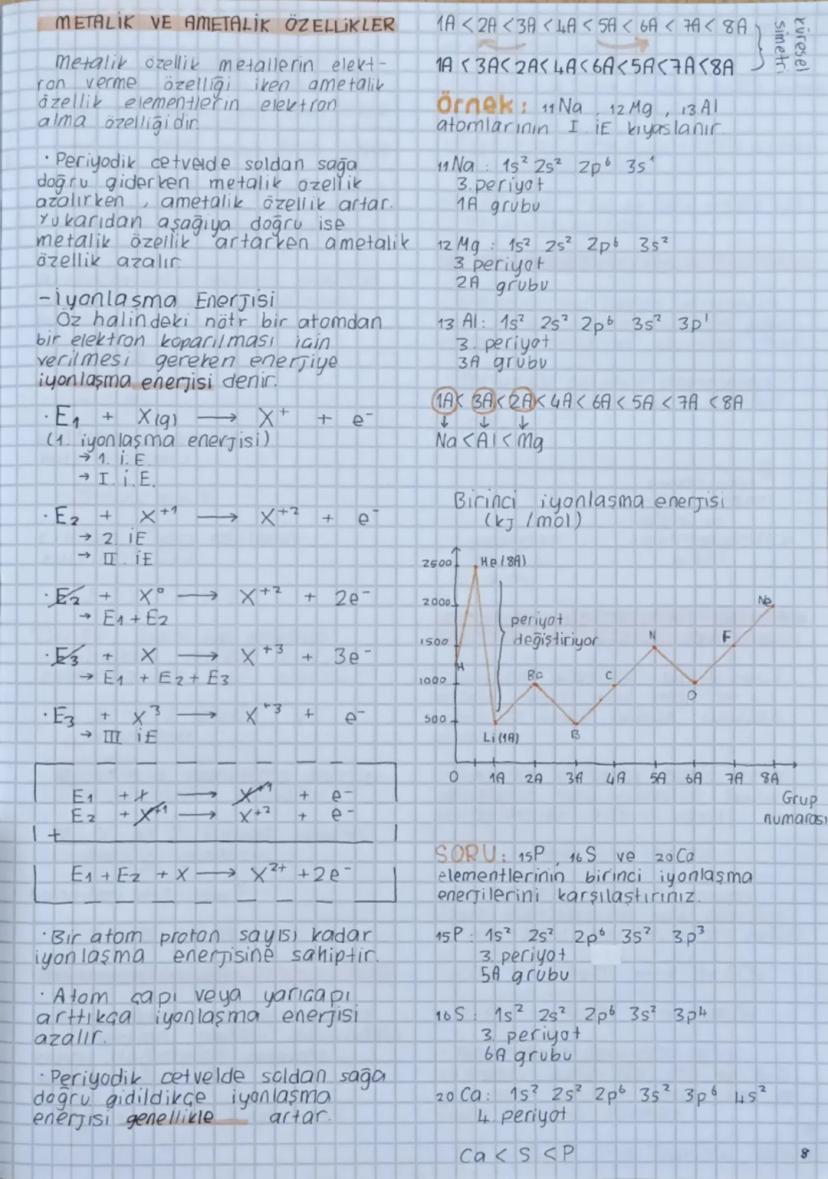 METALİK VE AMETALİK ÖZELLİKLER
Metalik özellik metallerin elekt-
ron verme özelliği iken ametalik
özellik elementlerin elektron
alma özelliğidir.
· Periyodik cetvelde soldan sağa
doğru giderken metalik özellik
azalırken, ametalik özellik artar.
Yukarıdan aşağıya doğru ise
metalik özellik artarken ametalik
özellik azalır.
- İyonlaşma Enerjisi
Öz halindeki nötr bir atomdan
bir elektron koparılması için
verilmesi gereken enerjiye
iyonlaşma enerjisi denir.
· E1 + X(g) → X⁺ + e⁻
(1. iyonlaşma enerjisi)
→ 1. İ.E
→ I. İ.E.
· E2 + X⁺¹ → X⁺² + e⁻
→ 2 İE
→ II. İE
· E2 + X⁰ → X⁺² + 2e⁻
→ E1 + E2
· E3 + X → X⁺³ + 3e⁻
→ E1 + E2 + E3
· E3 + X³ → X⁺³ + e⁻
→ III İE
E1 + X → X⁺¹ + e⁻
E2 + X⁺¹ → X⁺² + e⁻
+
E1 + E2 + X → X²⁺ + 2e⁻
· Bir atom proton sayısı kadar
iyonlaşma enerjisine sahiptir.
· Atom çapı veya yarıçapı
arttıkça iyonlaşma enerjisi
azalır.
· Periyodik cetvelde soldan sağa
doğru gidildikçe iyonlaşma
enerjisi genellikle artar.
1A < 2A < 3A < 4A < 5A < 6A < 7A < 8A
1A < 3A < 2A < 4A < 6A < 5A < 7A < 8A
küresel
simetri
Örnek: 11Na, 12Mg, 13Al
atomlarının I. İE kıyaslanır.
11Na: 1s² 2s² 2p⁶ 3s¹
3. periyot
1A grubu
12Mg: 1s² 2s² 2p⁶ 3s²
3 periyot
2A grubu
13Al: 1s² 2s² 2p⁶ 3s² 3p¹
3. periyot
3A grubu
1A < 3A < 2A < 4A < 6A < 5A < 7A < 8A
↓ ↓ ↓
Na < Al < Mg
Birinci iyonlaşma enerjisi
(kj/mol)
2500
He (8A)
2000
Ne
periyot
değiştiriyor
1500
N
F
H
1000
Be
C
O
500
Li (1A)
B
0 1A 2A 3A 4A 5A 6A 7A 8A
Grup
numarası
SORU: 15P, 16S ve 20Ca
elementlerinin birinci iyonlaşma
enerjilerini karşılaştırınız.
15P: 1s² 2s² 2p⁶ 3s² 3p³
3. periyot
5A grubu
16S: 1s² 2s² 2p⁶ 3s² 3p⁴
3. periyot
6A grubu
20Ca: 1s² 2s² 2p⁶ 3s² 3p⁶ 4s²
4. periyot
Ca < S < P
8